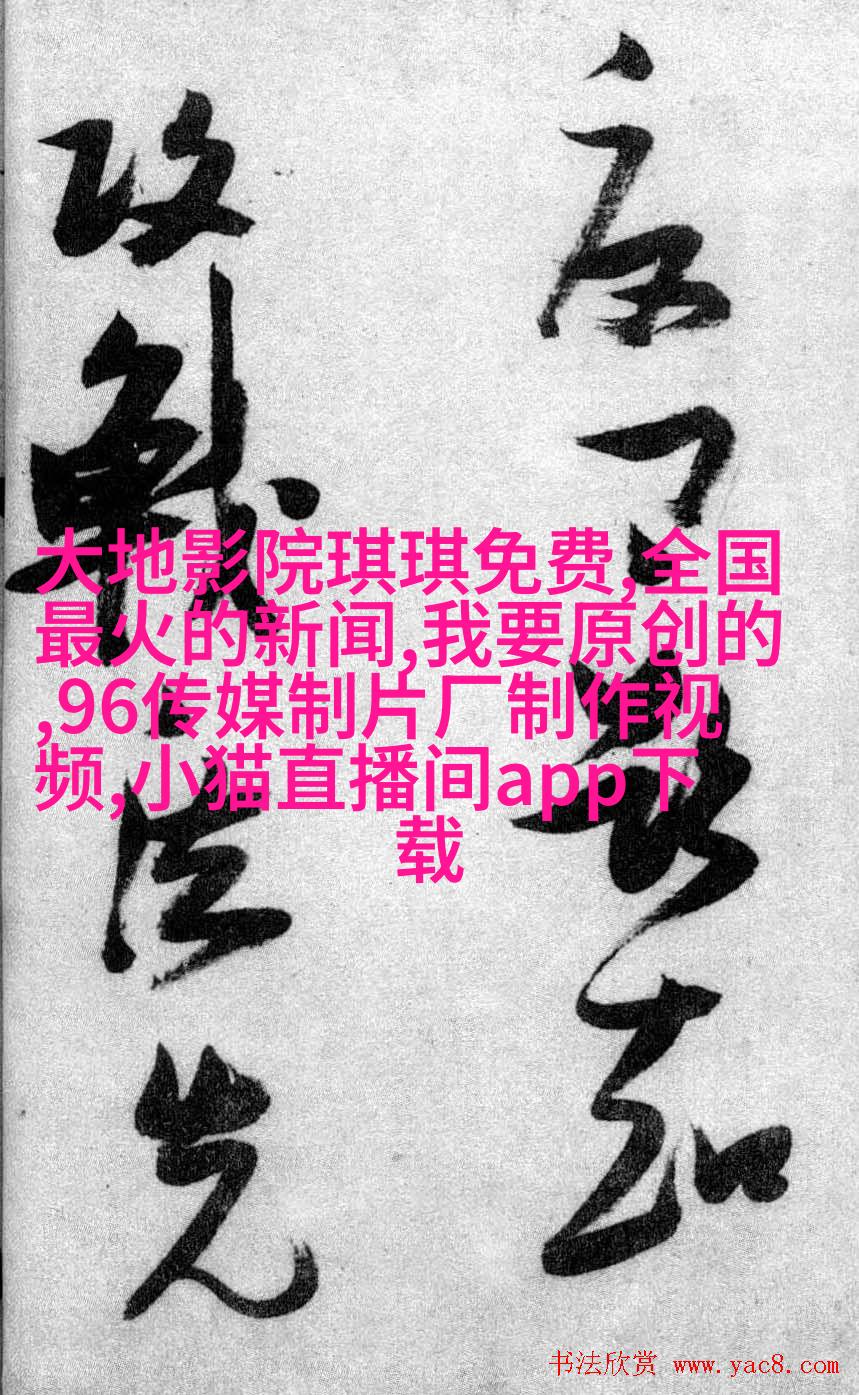 大地影院琪琪免费,全国
最火的新闻,我要原创的
,96传媒制片厂制作视
频,小猫直播间app下
载
知
攻戰法先
书法欣赏 www.yac8.com